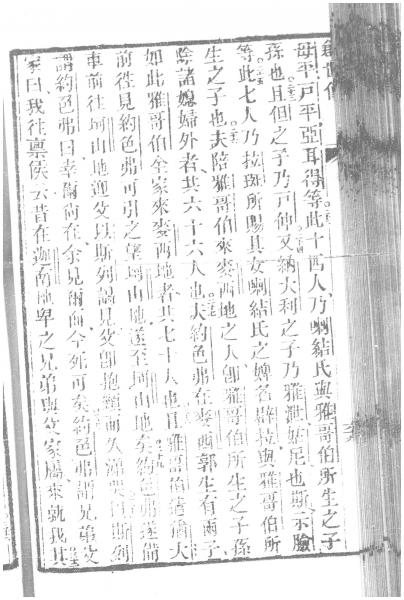 母平戶平亞耳得等此十四人乃唎結氏與雅哥伯所生之子
孫也且但之子乃戶伸又納大利之子乃雅泄姑尼也斯示臉
等此七人乃拉班所賜其女唎結氏之婢名辟拉與雅哥伯所
生之子也夫陪雅哥伯來麥西地之人卽雅哥伯所生之子孫
除諸媳婦外者共六十六人也夫約色弗在麥西郭生有兩子
如此雅哥伯全家來麥西地者共七十人也且雅哥伯遣猶大
前徃見約色弗可引之望坷山地遂至坷山地矣約色弗遂備
車前往坷山地迎父以斯列謁見父卽抱頸而久濕哭以斯列
謂約色弗曰幸爾尚在余見爾面今死可矣約色弗謂兄弟父
家曰我往稟侯云昔在迦南地卑之兄弟與父家屬來就我其